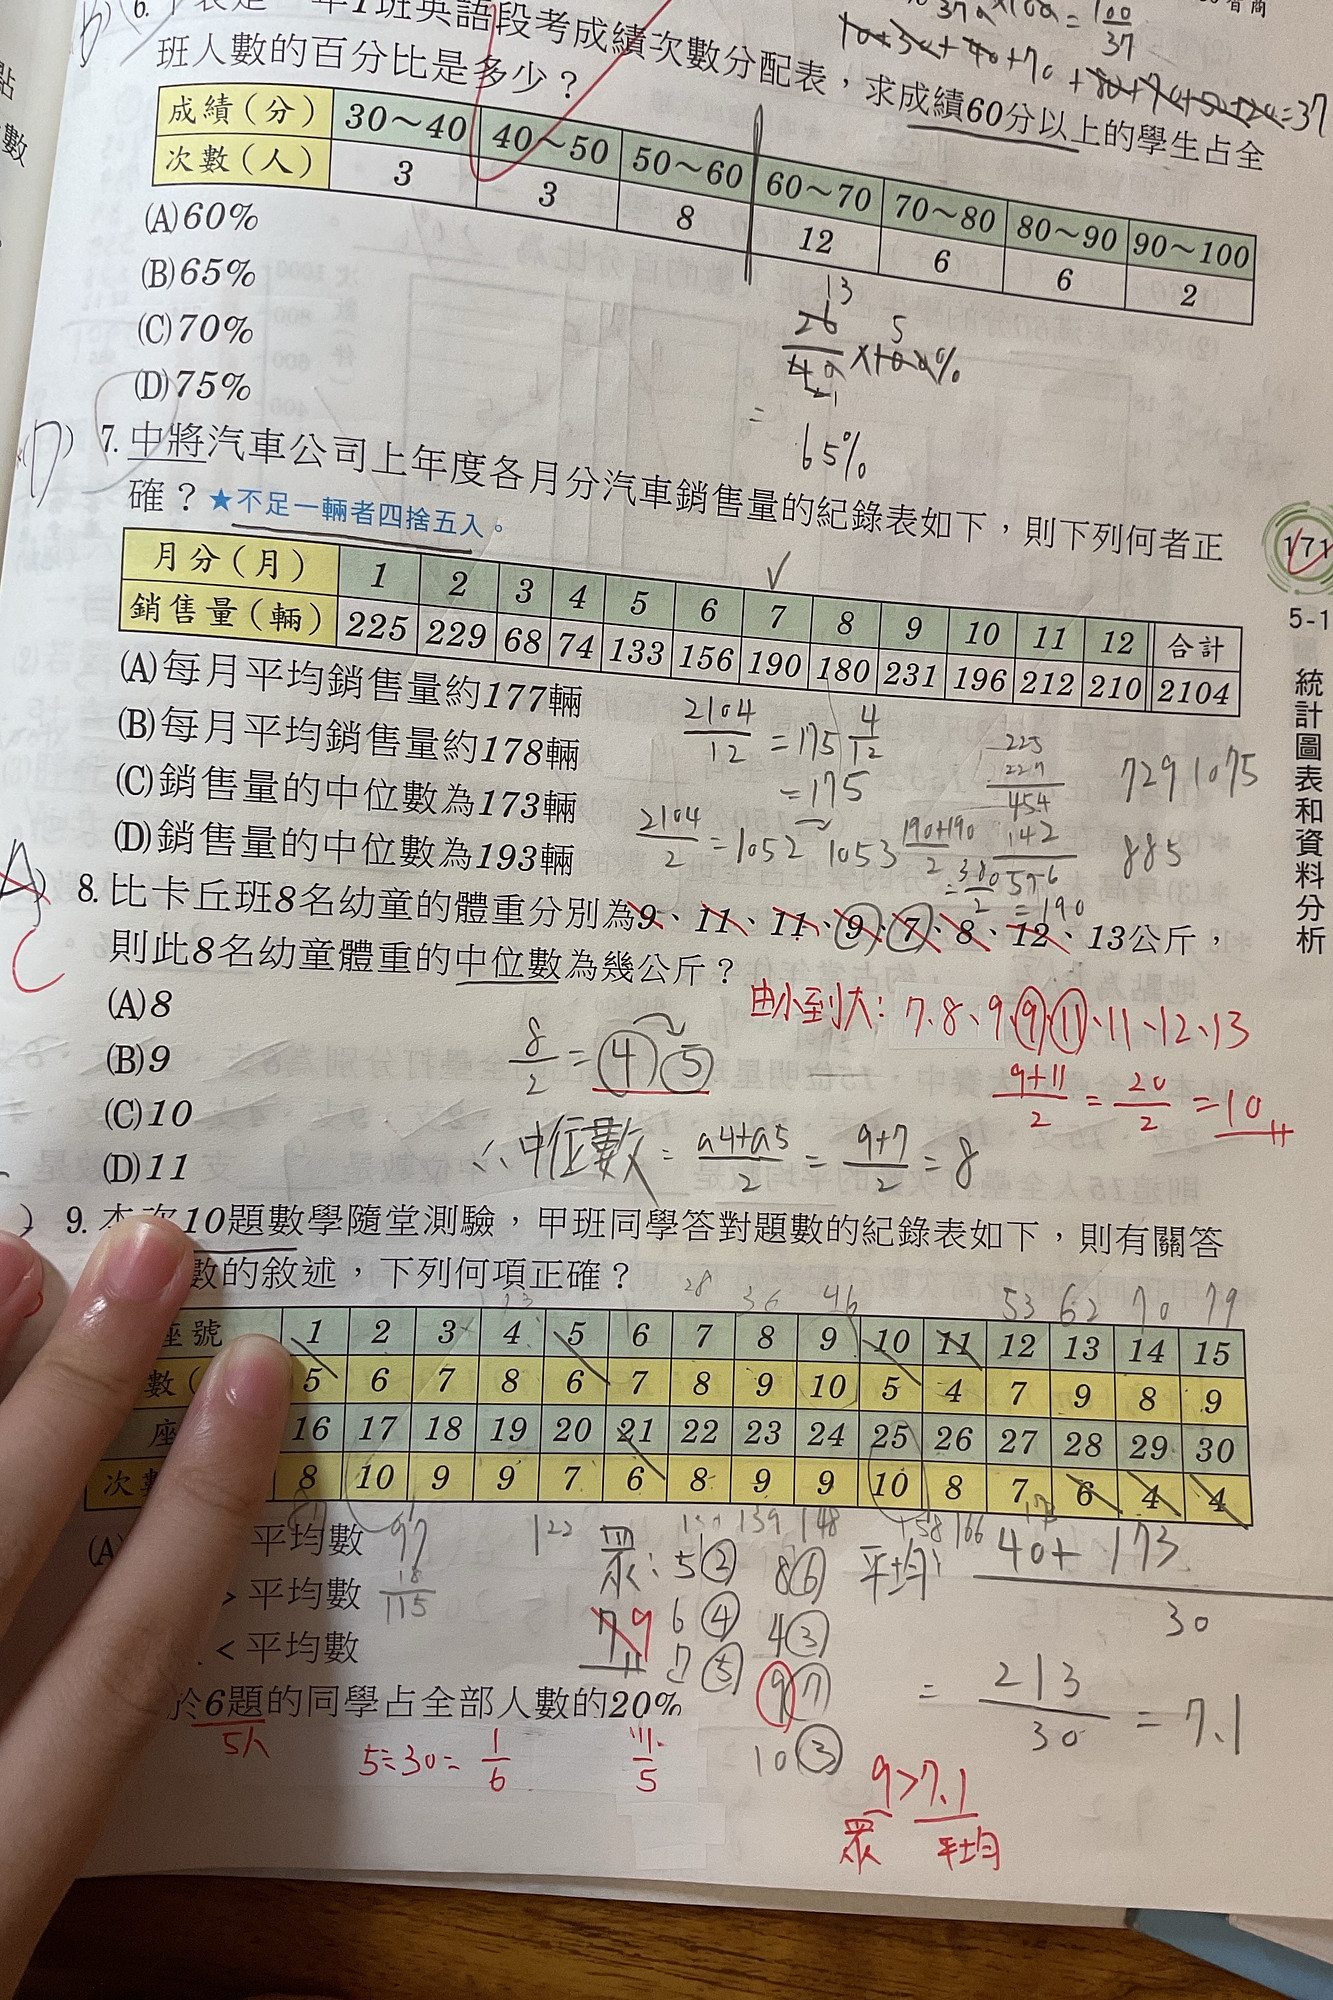 班人數的百分比是多少？
6. 年1班英語段考成績次數分配表，求成績60分以上的學生占全
成績(分) 30～40 40～50 50～60 60～70 70～80 80～90 90～100
次數(人) 3 3 8 12 6 6 2
(A)60%
(B)65%
(C)70%
(D)75%
13
26
5
65%
(D) 7. 中將汽車公司上年度各月分汽車銷售量的紀錄表如下，則下列何者正
確？★不足一輛者四捨五入。
月分(月) 1 2 3 4 5 6 7 8 9 10 11 12 合計
銷售量(輛) 225 229 68 74 133 156 190 180 231 196 212 210 2104
(A)每月平均銷售量約177輛
(B)每月平均銷售量約178輛
(C)銷售量的中位數為173輛
(D)銷售量的中位數為193輛
2104/12 = 175 4/12
= 175
2104/2 = 1052 1053
190+190/2
= 380/2 = 190
225
454
142
596
729 1075
885
171
5-1
統計圖表和資料分析
A
C
8. 比卡丘班8名幼童的體重分別為9、11、11、9、7、8、12、13公斤，
則此8名幼童體重的中位數為幾公斤？
(A)8
(B)9
(C)10
(D)11
由小到大：7、8、9、9、11、11、12、13
9+11/2 = 20/2 = 10
8/2 = 4 5
∴中位數 = a4+a5/2 = 9+7/2 = 8
9. 本次10題數學隨堂測驗，甲班同學答對題數的紀錄表如下，則有關答
數的敘述，下列何項正確？
28 36 46 53 62 70 79
座號 1 2 3 4 5 6 7 8 9 10 11 12 13 14 15
數( 5 6 7 8 6 7 8 9 10 5 4 7 9 8 9
座 16 17 18 19 20 21 22 23 24 25 26 27 28 29 30
次數 8 10 9 9 7 6 8 9 9 10 8 7 6 4 4
97 122 139 148 158 166
(A) 平均數
> 平均數
< 平均數
於6題的同學占全部人數的20%
115
眾：5② 8⑥
7 9 6④ 4③
7⑤ 9⑦
10③
平均： 40+173/30
= 213/30 = 7.1
5人
5÷30= 1/6
1/5
9>7.1
眾 平均